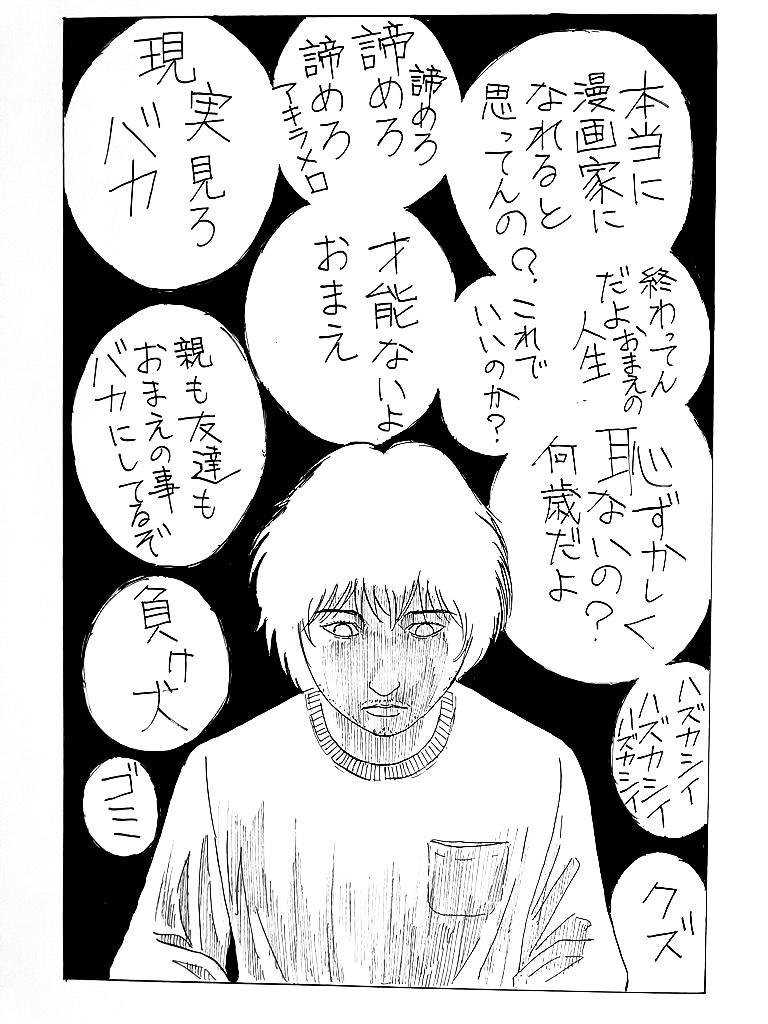 本当に
漫画家に
なれると
思ってんの?
諦めろ
諦めろ
諦めろ
アキラメロ
現
実見ろ
バカ
終わってん
だよおまえの
人生
これで
いいのか?
才能ないよ
おまえ
恥ずかしく
ないの?
何歳だよ
親も友達も
おまえの事
バカにしてるぞ
負け犬
ゴミ
ハズカシイ
ハズカシイ
ハズカシイ
クズ